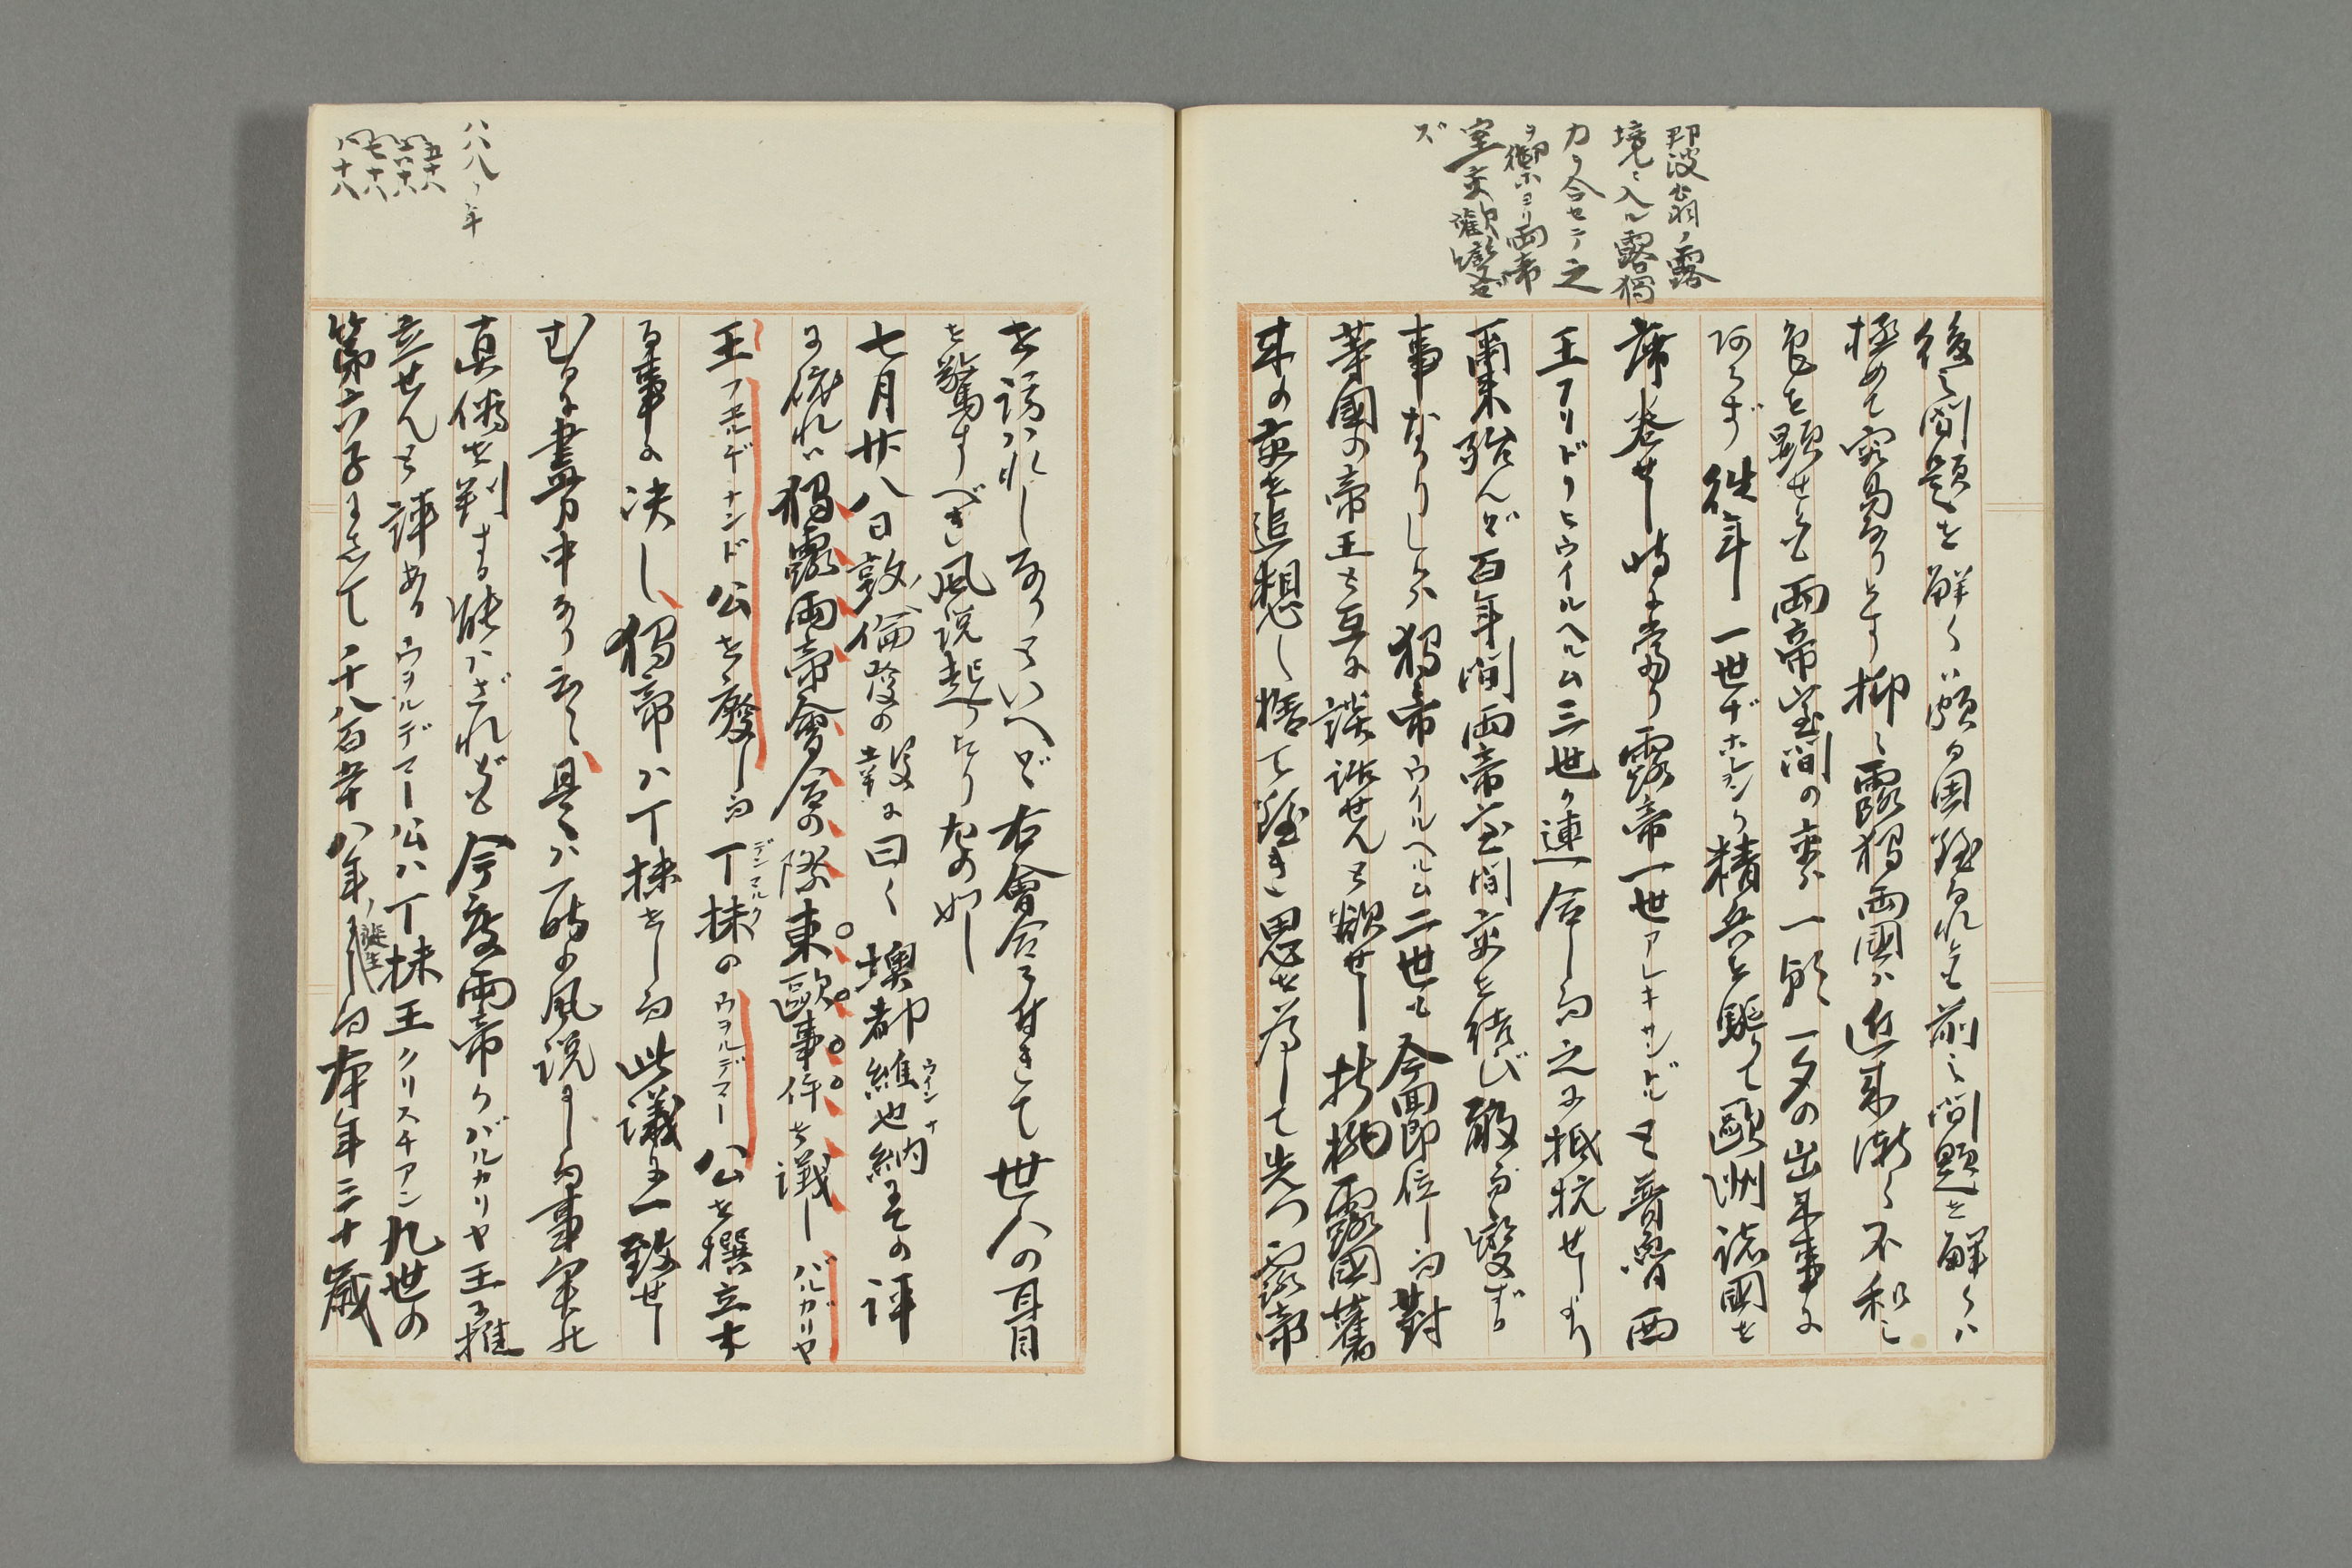 那波翁ノ露
境ニ入ル露獨
力ヲ合セテ之
ヲ禦ホヨリ両帝
室交歓變セ
ズ
後之問題を解くハ頗る困難なれども前之問題を解くハ
極めて容易なりとす抑々露獨両國ハ近来漸く不和之
色を顕せども両帝室間の交ハ一朝一夕の出来事に
阿らず往年一世ナポレヲンが精兵を駆りて歐洲諸國を
席巻せし時に當り露帝一世アレキサンドルと普魯西
王フリドリヒウイルヘルム三世が連合し而之に抵抗せしより
爾来殆んど百年間両帝室間交を結び敢而變ずる
事なかりしが獨帝ウイルヘルム二世も今回即位し而對
等國の帝王と互に談話せんと欲せし折柄露國舊
来の交を追想し捨て難き思を為して先つ露帝
を訪ハれしなりといへど右會合に付きて世人の耳目
を驚すべき風説起りたり左の如し
七月廿八日敦倫發の報に曰く墺都維也納よりの評
に依れハ獨露両帝會合の際東歐事件を議しバルガリヤ
王フエルヂナンド公を廢し而丁抹のウヲルデマー公を撰立す
る事に决し獨帝ハ丁抹をし而此議に一致せし
むるに盡力中なり云々是ハ一時の風説にし而事実の
真偽を判する能ハざれども今度両帝がバルカリヤ王に推
立せんと評あるウヲルデマー公ハ丁抹王クリスチアン九世の
第六子にして千八百五十八年ノ誕生にし而本年三十歳
デンマルク
ウインナ
八八ノ年
五十八
六十八
七十八
八十八